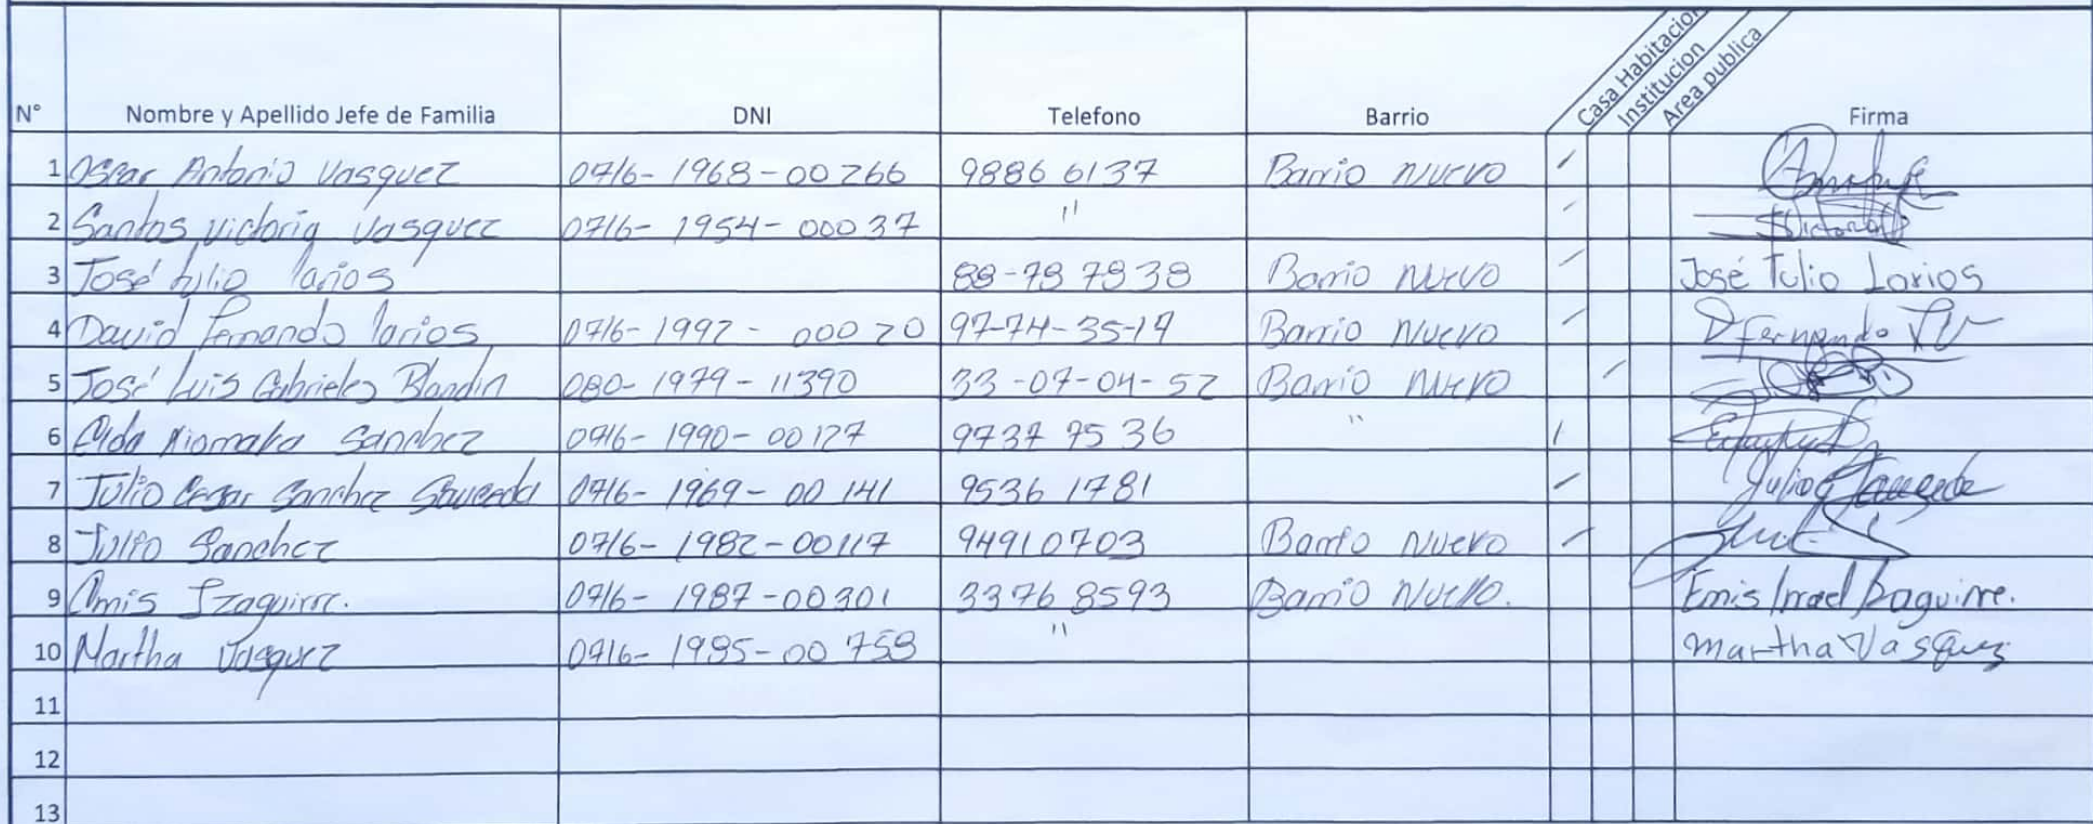 N° Nombre y Apellido Jefe de Familia DNI Telefono Barrio Casa Habitacion Institucion Area publica Firma
1 Oscar Antonio Vasquez 0716-1968-00266 9886 6137 Barrio Nuevo /
2 Santos Victoria Vasquez 0716-1954-00037 " /
3 José tulio larios 88-78 7838 Barrio Nuevo / José Tulio Larios
4 David Fernando larios 0716-1992-00020 97-74-35-17 Barrio Nuevo / D Fernando
5 José Luis Gabrieles Blandin 080-1979-11390 33-07-04-52 Barrio Nuevo /
6 Xiomara Sanchez 0716-1990-00127 9737 7536 " /
7 Julio Cesar Sanchez Sauceda 0716-1969-00141 9536 1781 / Julio Sauceda
8 Julio Sanchez 0716-1982-00117 94910703 Barrio Nuevo /
9 Emis Izaguirre. 0716-1987-00301 3376 8593 Barrio Nuevo. Emis Izaguirre.
10 Martha Vasquez 0716-1985-00758 " Martha Vasquez
11
12
13